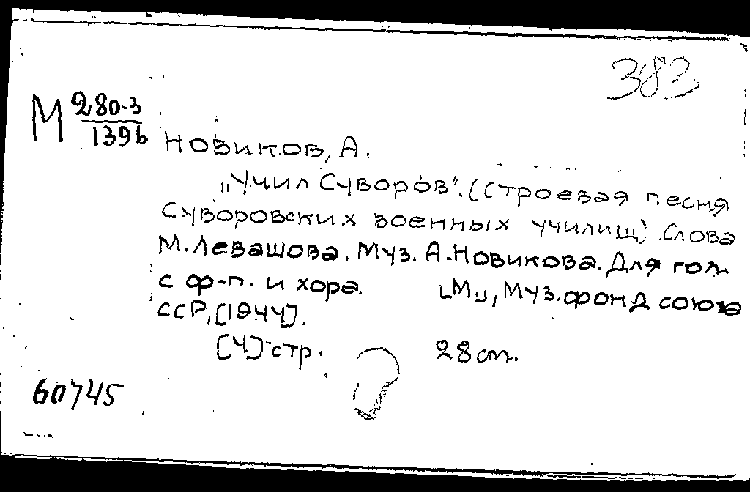 383
М 280-3
139б
Новиков, А.
"Учил Суворов". (Строевая песня
Суворовских военных училищ) Слова
М. Левашова. Муз. А. Новикова. Для гол.
с ф-п. и хора. [М], Муз. фонд союза
ССР, [1944].
[4] стр. 28 cm.
60745